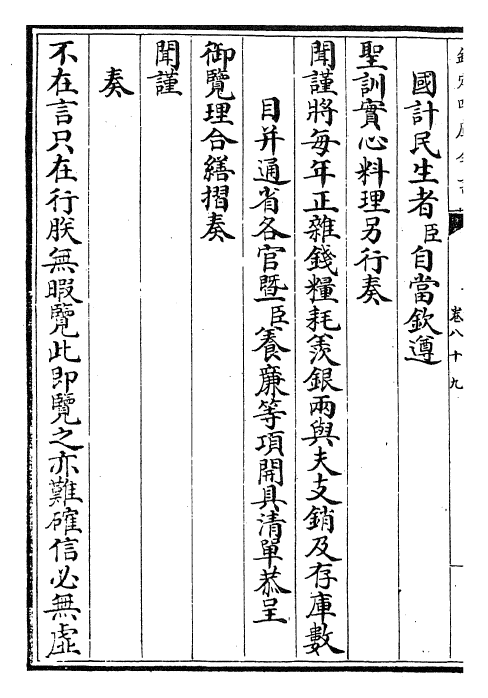 國計民生者臣自當欽遵
聖訓實心料理另行奏
聞謹將每年正雜錢糧耗羨銀兩與夫支銷及存庫數
目并通省各官暨臣養廉等項開具清單恭呈
御覽理合繕摺奏
聞謹
奏
不在言只在行朕無暇覽此即覽之亦難確信必無虛
卷八十九